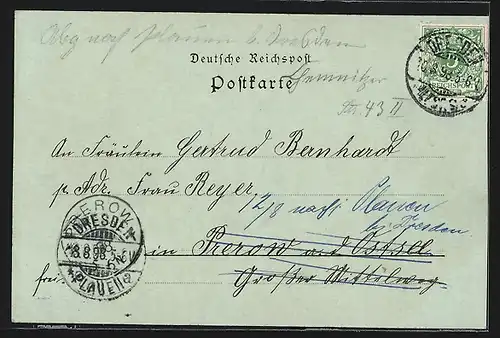 Abg nach Plauen b. Dresden
Deutsche Reichspost
Postkarte
Chemnitzer
Str. 43 II
DRESDEN
REICHSPOST
An Fräulein Gertrud Bernhardt
p. Adr. Frau Reyer.
12/8 nach Plauen
bei Dresden
in Prerow a/d Ostsee
Großer Mittelweg
PREROW
DRESDEN
PLAUEN